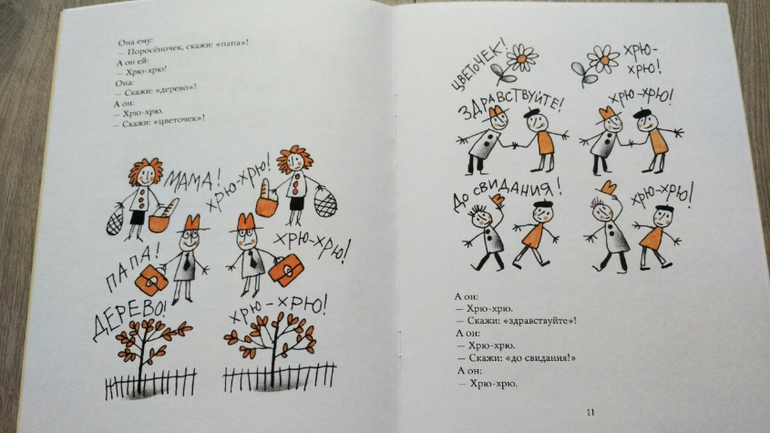 Она ему:
— Поросёночек, скажи: «папа»!
А он ей:
— Хрю-хрю!
Она:
— Скажи: «дерево»!
А он:
— Хрю-хрю.
— Скажи: «цветочек»!
МАМА!
ХРЮ-ХРЮ!
ПАПА!
ХРЮ-ХРЮ!
ДЕРЕВО!
ХРЮ-ХРЮ!
ЦВЕТОЧЕК!
ХРЮ-
ХРЮ!
ЗДРАВСТВУЙТЕ!
ХРЮ-ХРЮ!
ДО СВИДАНИЯ!
ХРЮ-ХРЮ!
А он:
— Хрю-хрю.
— Скажи: «здравствуйте»!
А он:
— Хрю-хрю.
— Скажи: «до свидания!»
А он:
— Хрю-хрю.
11